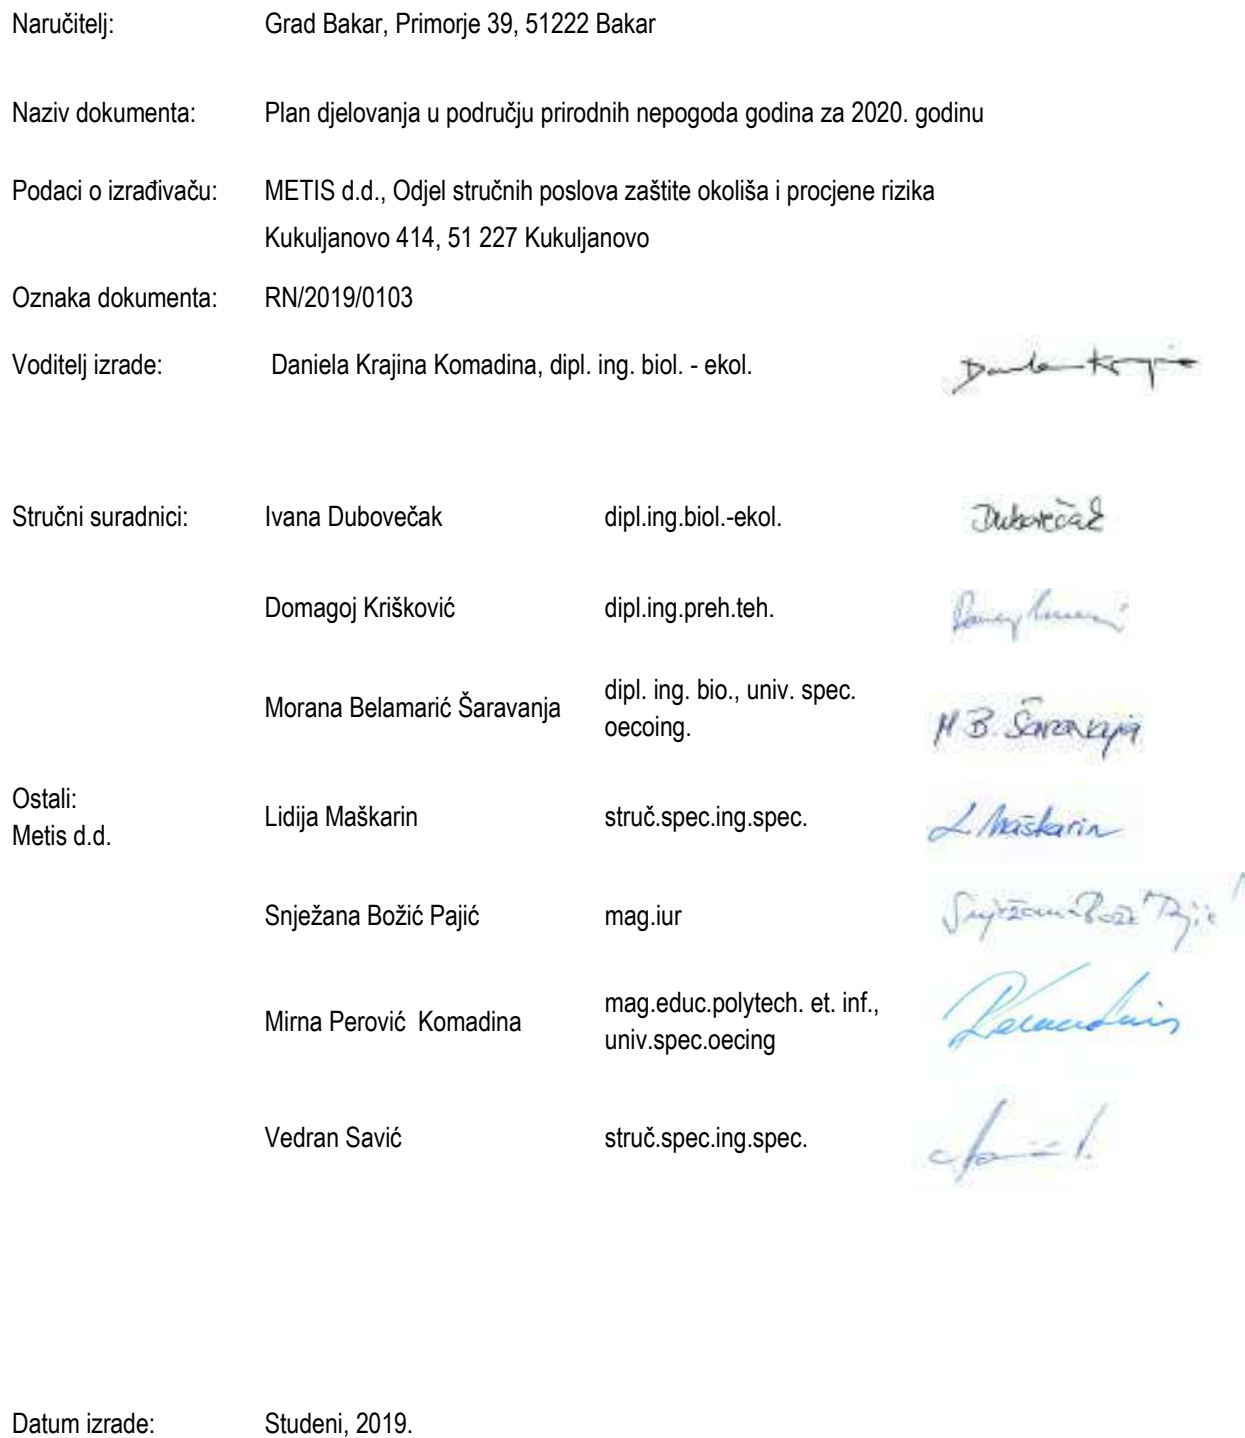 Naručitelj: Grad Bakar, Primorje 39, 51222 Bakar
Naziv dokumenta: Plan djelovanja u području prirodnih nepogoda godina za 2020. godinu
Podaci o izrađivaču: METIS d.d., Odjel stručnih poslova zaštite okoliša i procjene rizika
Kukuljanovo 414, 51 227 Kukuljanovo
Oznaka dokumenta: RN/2019/0103
Voditelj izrade: Daniela Krajina Komadina, dipl. ing. biol. - ekol.
Stručni suradnici: Ivana Dubovečak dipl.ing.biol.-ekol. Dubovečak
Domagoj Krišković dipl.ing.preh.teh.
Morana Belamarić Šaravanja dipl. ing. bio., univ. spec.
oecoing. M B. Šaravanja
Ostali:
Metis d.d.
Lidija Maškarin struč.spec.ing.spec. L Maškarin
Snježana Božić Pajić mag.iur
Mirna Perović Komadina mag.educ.polytech. et. inf.,
univ.spec.oecing
Vedran Savić struč.spec.ing.spec.
Datum izrade: Studeni, 2019.